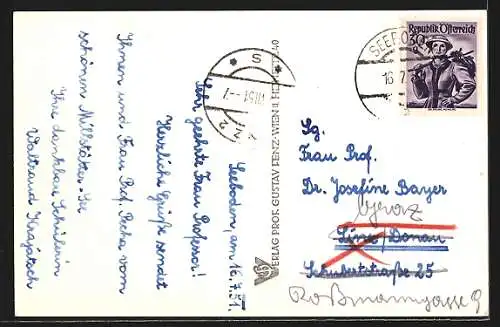 Seeboden, am 16.7.51.
Sehr geehrte Frau Professor!
Herzliche Grüße sendet
Ihnen und Frau Prof. Pecha vom
schönen Millstätter-See
Ihre dankbare Schülerin
Waltraud
VERLAG PROF. GUSTAV FENZ-WIEN
REPUBLIK ÖSTERREICH
30 g
SEEBO
16.7.
S
VII 51
Sg.
Frau Prof.
Dr. Josefine Bayer
Linz/Donau
Schubertstraße 25
Roßmanngasse 9